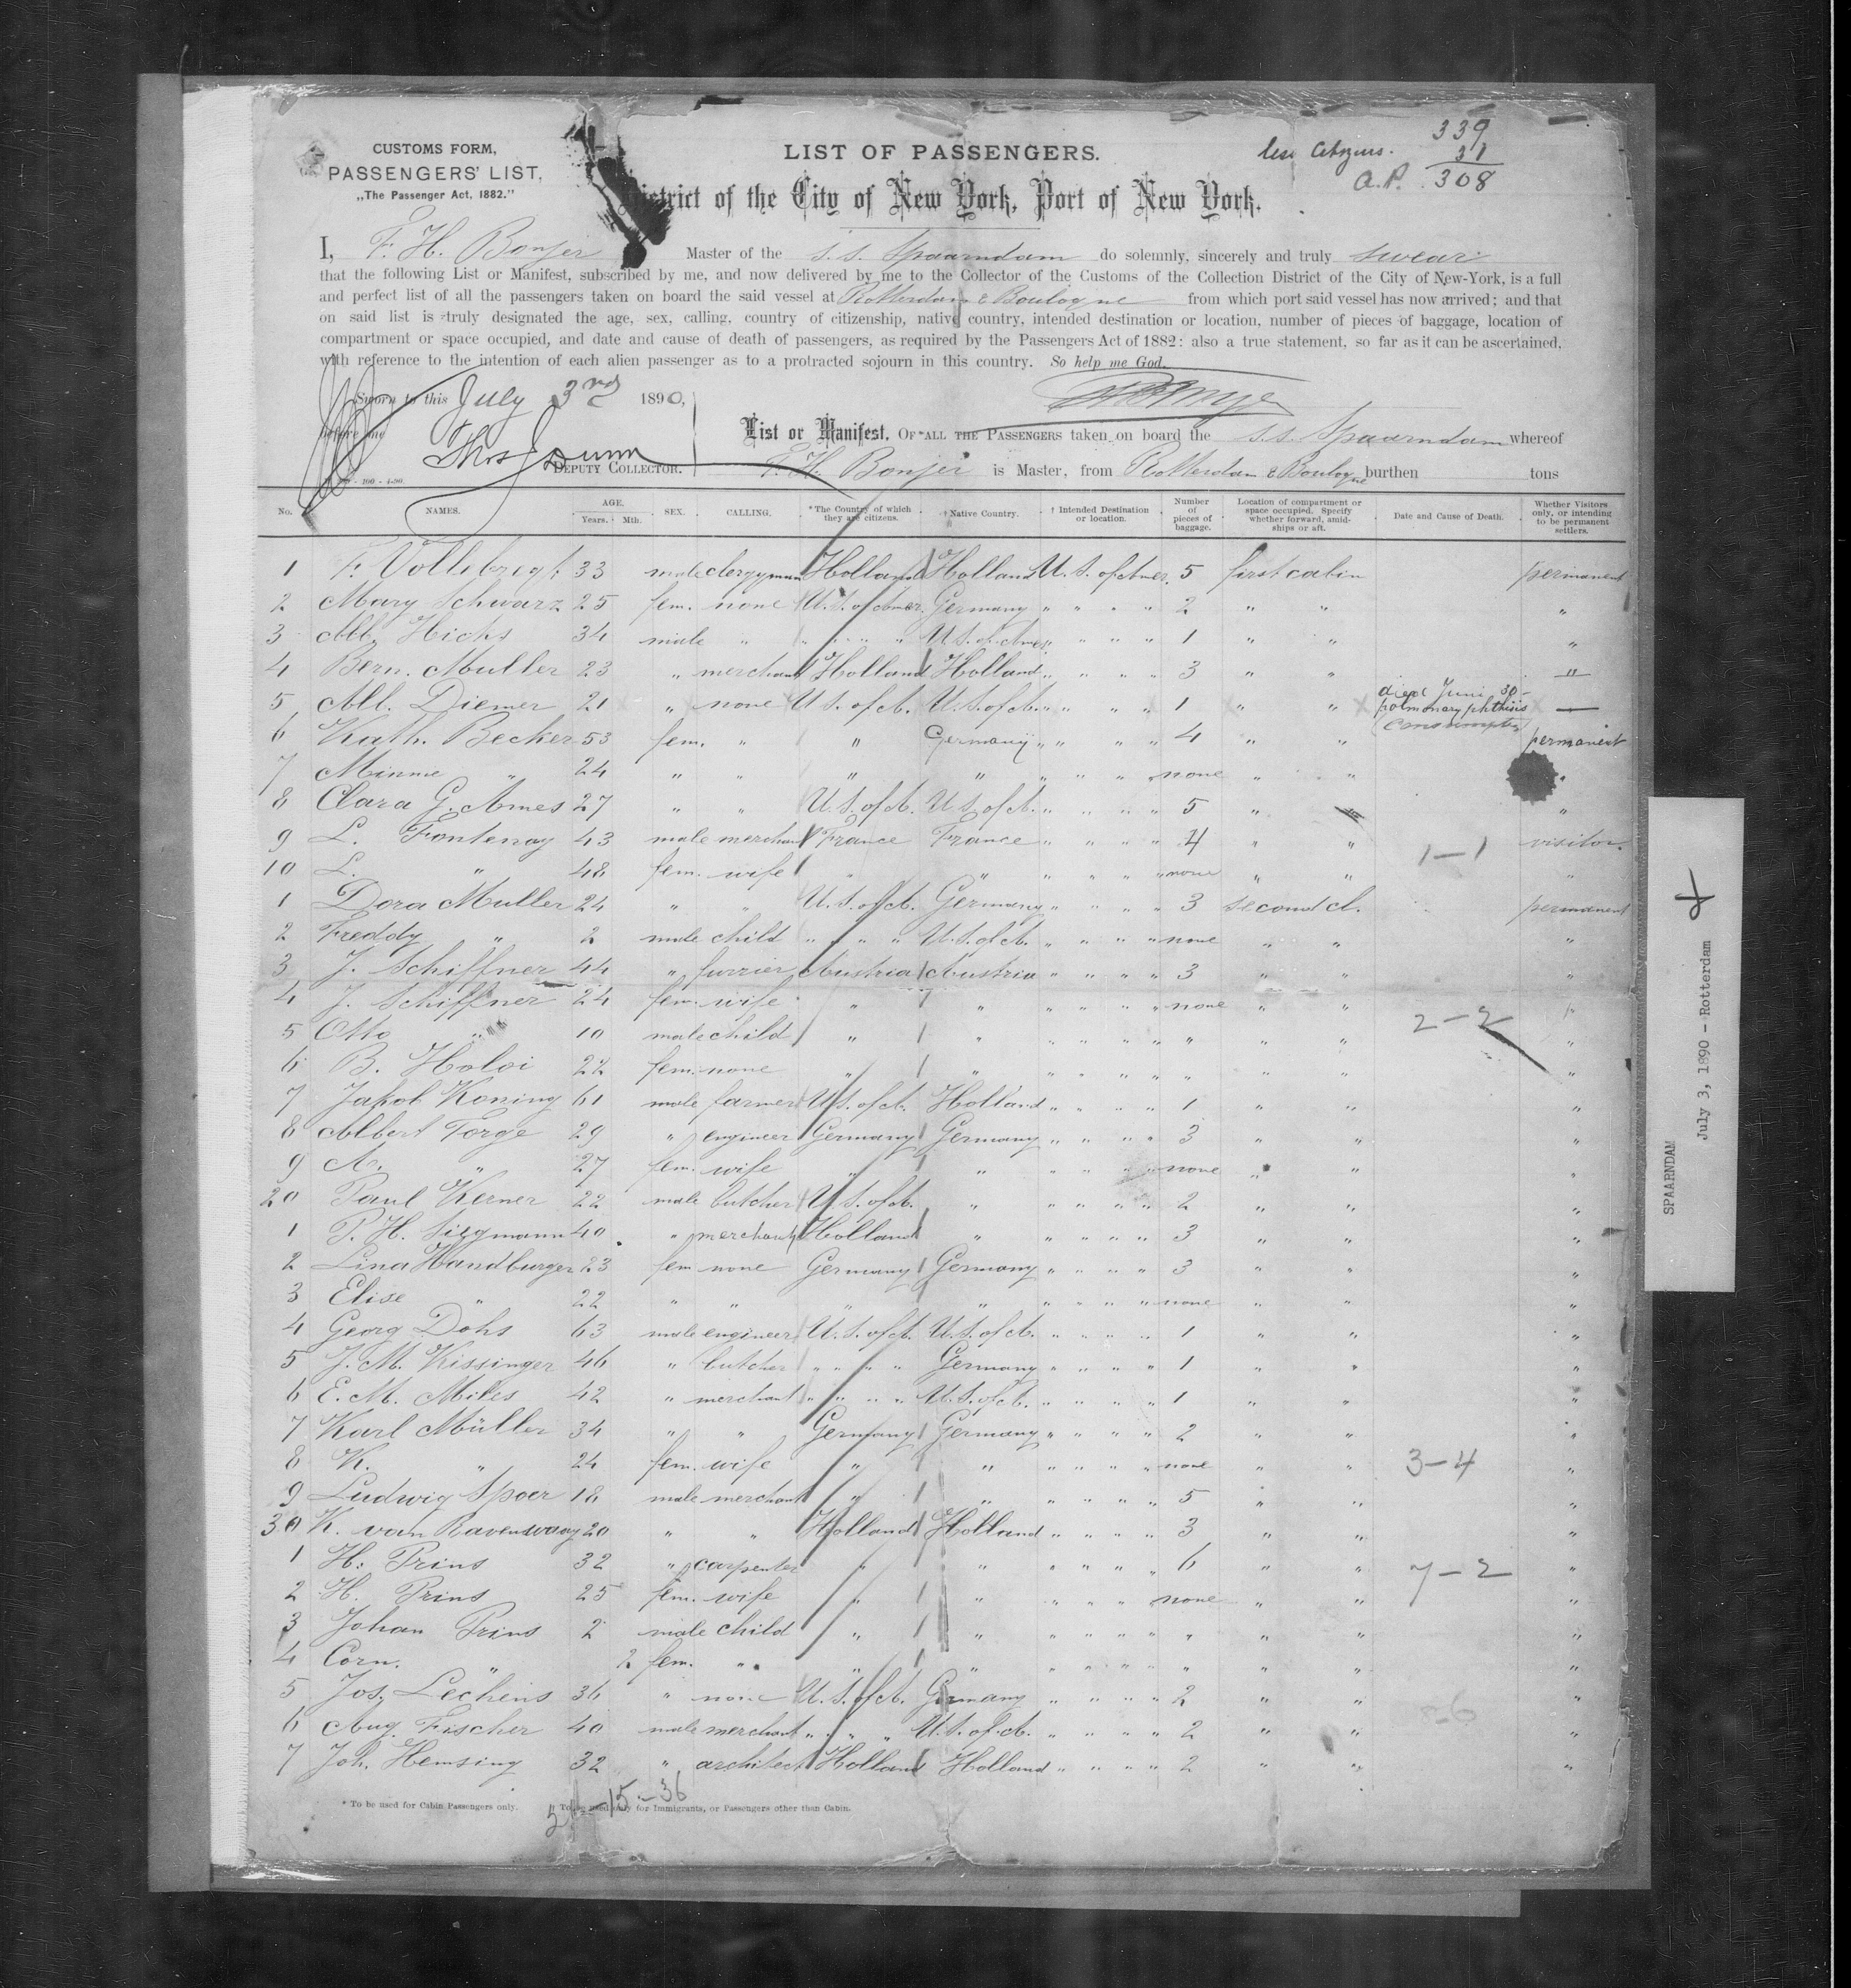 339
less Citizens. 31
A.P. 308
CUSTOMS FORM,
PASSENGERS' LIST,
„The Passenger Act, 1882."
LIST OF PASSENGERS.
District of the City of New York, Port of New York.
I, F. H. Bonjer Master of the s.s. Spaarndam do solemnly, sincerely and truly swear
that the following List or Manifest, subscribed by me, and now delivered by me to the Collector of the Customs of the Collection District of the City of New-York, is a full
and perfect list of all the passengers taken on board the said vessel at Rotterdam & Boulogne from which port said vessel has now arrived; and that
on said list is truly designated the age, sex, calling, country of citizenship, native country, intended destination or location, number of pieces of baggage, location of
compartment or space occupied, and date and cause of death of passengers, as required by the Passengers Act of 1882: also a true statement, so far as it can be ascertained,
with reference to the intention of each alien passenger as to a protracted sojourn in this country. So help me God.
Sworn to this July 3rd 1890,
before me
Thos Dunn
DEPUTY COLLECTOR.
List or Manifest, OF ALL THE PASSENGERS taken on board the s.s. Spaarndam whereof
F. H. Bonjer is Master, from Rotterdam & Boulogne burthen tons
No. NAMES. AGE. Years. Mth. SEX. CALLING. * The Country of which they are citizens. † Native Country. † Intended Destination or location. Number of pieces of baggage. Location of compartment or space occupied. Specify whether forward, amidships or aft. Date and Cause of Death. Whether Visitors only, or intending to be permanent settlers.
1 F. Vollebregt 33 male clergyman Holland Holland U. S. of Amer. 5 first cabin permanent
2 Mary Schwarz 25 fem. none U. S. of Amer. Germany " " " " 2 " " "
3 Alb. Hicks 34 male " " " " " U. S. of Amer. " " " " 1 " " "
4 Bern. Muller 23 " merchant Holland Holland " " " " 3 " " "
5 Alb. Diemer 21 " none U. S. of A. U. S. of A. " " " " 1 " " died Juni 30 - pulmonary phthisis consumption —
6 Kath. Becker 53 fem. " " Germany " " " " 4 " " permanent
7 Minnie " 24 " " " " " " " " none " " "
8 Clara G. Ames 27 " " U. S. of A. U. S. of A. " " " " 5 " " "
9 L. Fontenay 43 male merchant France France " " " " 4 " " 1–1 visitor.
10 L. " 48 fem. wife " " " " " " none " " "
1 Dora Muller 24 " " U. S. of A. Germany " " " " 3 second cl. permanent
2 Freddy " 2 male child " " " " U. S. of A. " " " " none " " "
3 J. Schiffner 44 " furrier Austria Austria " " " " 3 " " "
4 J. Schiffner 24 fem. wife " " " " " " none " " "
5 Otto " 10 male child " " " " " " " " " 2–2 "
6 B. Holoi 22 fem. none " " " " " " " " " "
7 Jakob Koning 61 male farmer U. S. of A. Holland " " " " 1 " " "
8 Albert Torge 29 " engineer Germany Germany " " " " 3 " " "
9 A. " 27 fem. wife " " " " " " none " " "
20 Paul Kerner 22 male butcher U. S. of A. " " " " " 2 " " "
1 P. H. Siegmann 40 " merchant Holland " " " " " 3 " " "
2 Lina Handburger 23 fem none Germany Germany " " " " 3 " " "
3 Elise " 22 " " " " " " " " none " " "
4 Georg Dohs 63 male engineer U. S. of A. U. S. of A. " " " " 1 " " "
5 J. M. Kissinger 46 " butcher " " " " Germany " " " " 1 " " "
6 E. M. Miles 42 " merchant " " " " U. S. of A. " " " " 1 " " "
7 Karl Müller 34 " " Germany Germany " " " " 2 " " "
8 K. " 24 fem. wife " " " " " " none " " 3–4 "
9 Ludwig Spoer 18 male merchant " " " " " " 5 " " "
30 K. van Ravenswaay 20 " " Holland Holland " " " " 3 " " "
1 H. Prins 32 " carpenter " " " " " " 6 " " "
2 H. Prins 25 fem. wife " " " " " " none " " 7–2 "
3 Johan Prins 2 male child " " " " " " " " " "
4 Corn. " 2 fem. " " " " " " " " " " "
5 Jos. Lechens 36 " none U. S. of A. Germany " " " " 2 " " "
6 Aug. Fischer 40 male merchant " " " U. S. of A. " " " " 2 " " "
7 Joh. Hemsing 32 " architect Holland Holland " " " " 2 " " "
* To be used for Cabin Passengers only. † To be used only for Immigrants, or Passengers other than Cabin.
–15–36
SPAARNDAM
July 3, 1890 – Rotterdam